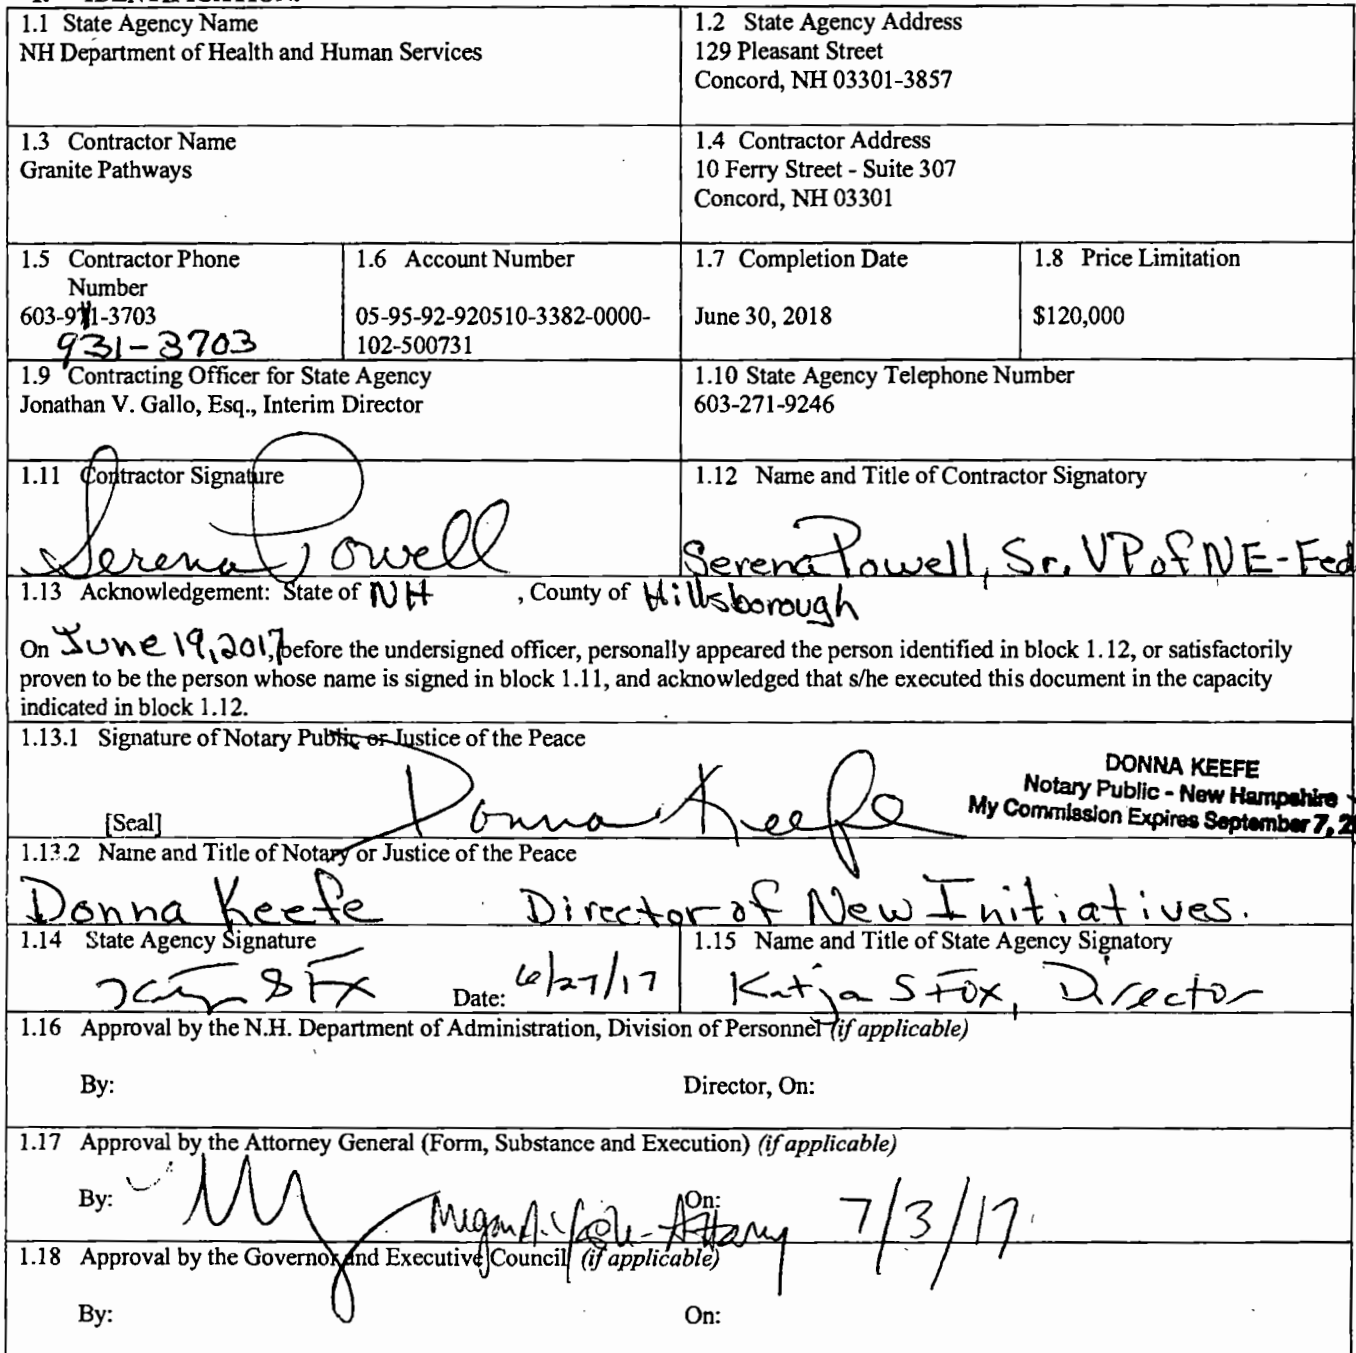 1.1 State Agency Name
NH Department of Health and Human Services
1.2 State Agency Address
129 Pleasant Street
Concord, NH 03301-3857
1.3 Contractor Name
Granite Pathways
1.4 Contractor Address
10 Ferry Street - Suite 307
Concord, NH 03301
1.5 Contractor Phone
Number
603-911-3703
931-3703
1.6 Account Number
05-95-92-920510-3382-0000-
102-500731
1.7 Completion Date
June 30, 2018
1.8 Price Limitation
$120,000
1.9 Contracting Officer for State Agency
Jonathan V. Gallo, Esq., Interim Director
1.10 State Agency Telephone Number
603-271-9246
1.11 Contractor Signature
Serena Powell
1.12 Name and Title of Contractor Signatory
Serena Powell, Sr. VP of NE-Fed
1.13 Acknowledgement: State of NH , County of Hillsborough
On June 19, 2017, before the undersigned officer, personally appeared the person identified in block 1.12, or satisfactorily
proven to be the person whose name is signed in block 1.11, and acknowledged that s/he executed this document in the capacity
indicated in block 1.12.
1.13.1 Signature of Notary Public or Justice of the Peace
Donna Keefe
[Seal]
DONNA KEEFE
Notary Public - New Hampshire
My Commission Expires September 7, 2
1.13.2 Name and Title of Notary or Justice of the Peace
Donna Keefe Director of New Initiatives.
1.14 State Agency Signature
Date: 6/27/17
1.15 Name and Title of State Agency Signatory
Katja S Fox, Director
1.16 Approval by the N.H. Department of Administration, Division of Personnel (if applicable)
By: Director, On:
1.17 Approval by the Attorney General (Form, Substance and Execution) (if applicable)
By: On: 7/3/17
1.18 Approval by the Governor and Executive Council (if applicable)
By: On: